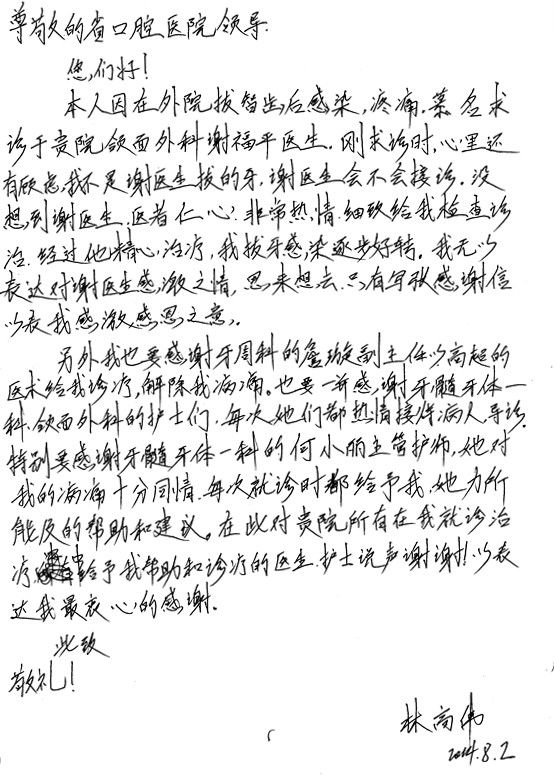 尊敬的省口腔医院领导:
您们好!
本人因在外院拔智齿后感染,疼痛.慕名求
诊于贵院颌面外科谢福平医生.刚求诊时,心里还
有顾虑,我不是谢医生拔的牙,谢医生会不会接诊.没
想到谢医生.医者仁心!非常热情.细致给我检查诊
治.经过他精心治疗,我拔牙感染逐步好转.我无以
表达对谢医生感激之情,思来想去.只有写秋感谢信
以表我感激感恩之意.
另外我也要感谢牙周科的詹璇副主任以高超的
医术给我诊疗,解除我病痛.也要一并感谢牙髓牙体一
科.颌面外科的护士们.每次她们都热情接待病人.导诊.
特别要感谢牙髓牙体一科的何小丽主管护师,她对
我的病痛十分同情.每次就诊时都给予我,她力所
能及的帮助和建议。在此对贵院所有在我就诊治
疗中给予我帮助和诊疗的医生.护士说声谢谢!以表
达我最衷心的感谢.
此致
敬礼!
林高伟
2024.8.2